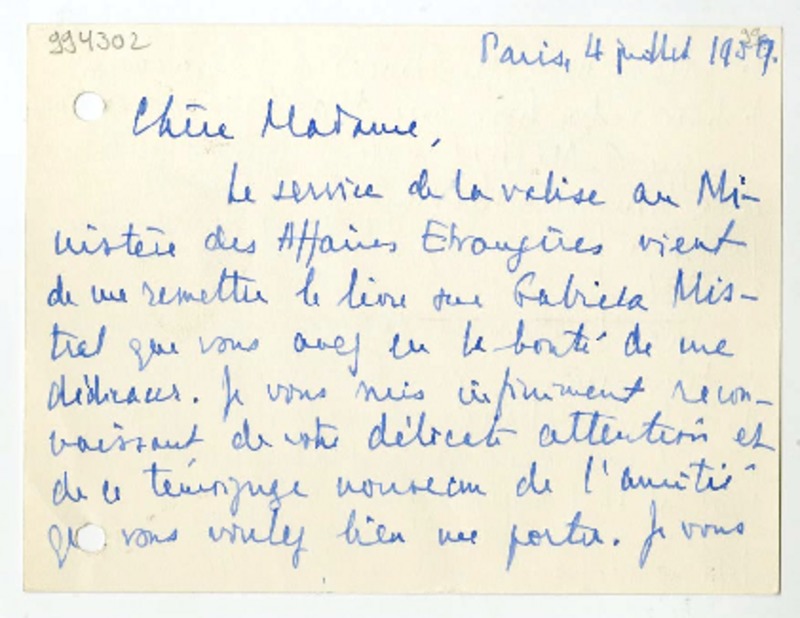 994302
Paris, 4 juillet 1959.
Chère Madame,
Le service de la valise au Mi-
nistère des Affaires Etrangères vient
de me remettre le livre sur Gabriela Mis-
tral que vous avez eu la bonté de me
dédicacer. Je vous suis infiniment recon-
naissant de votre délicate attention et
de ce témoignage nouveau de l'amitié
que vous voulez bien me porter. Je vous